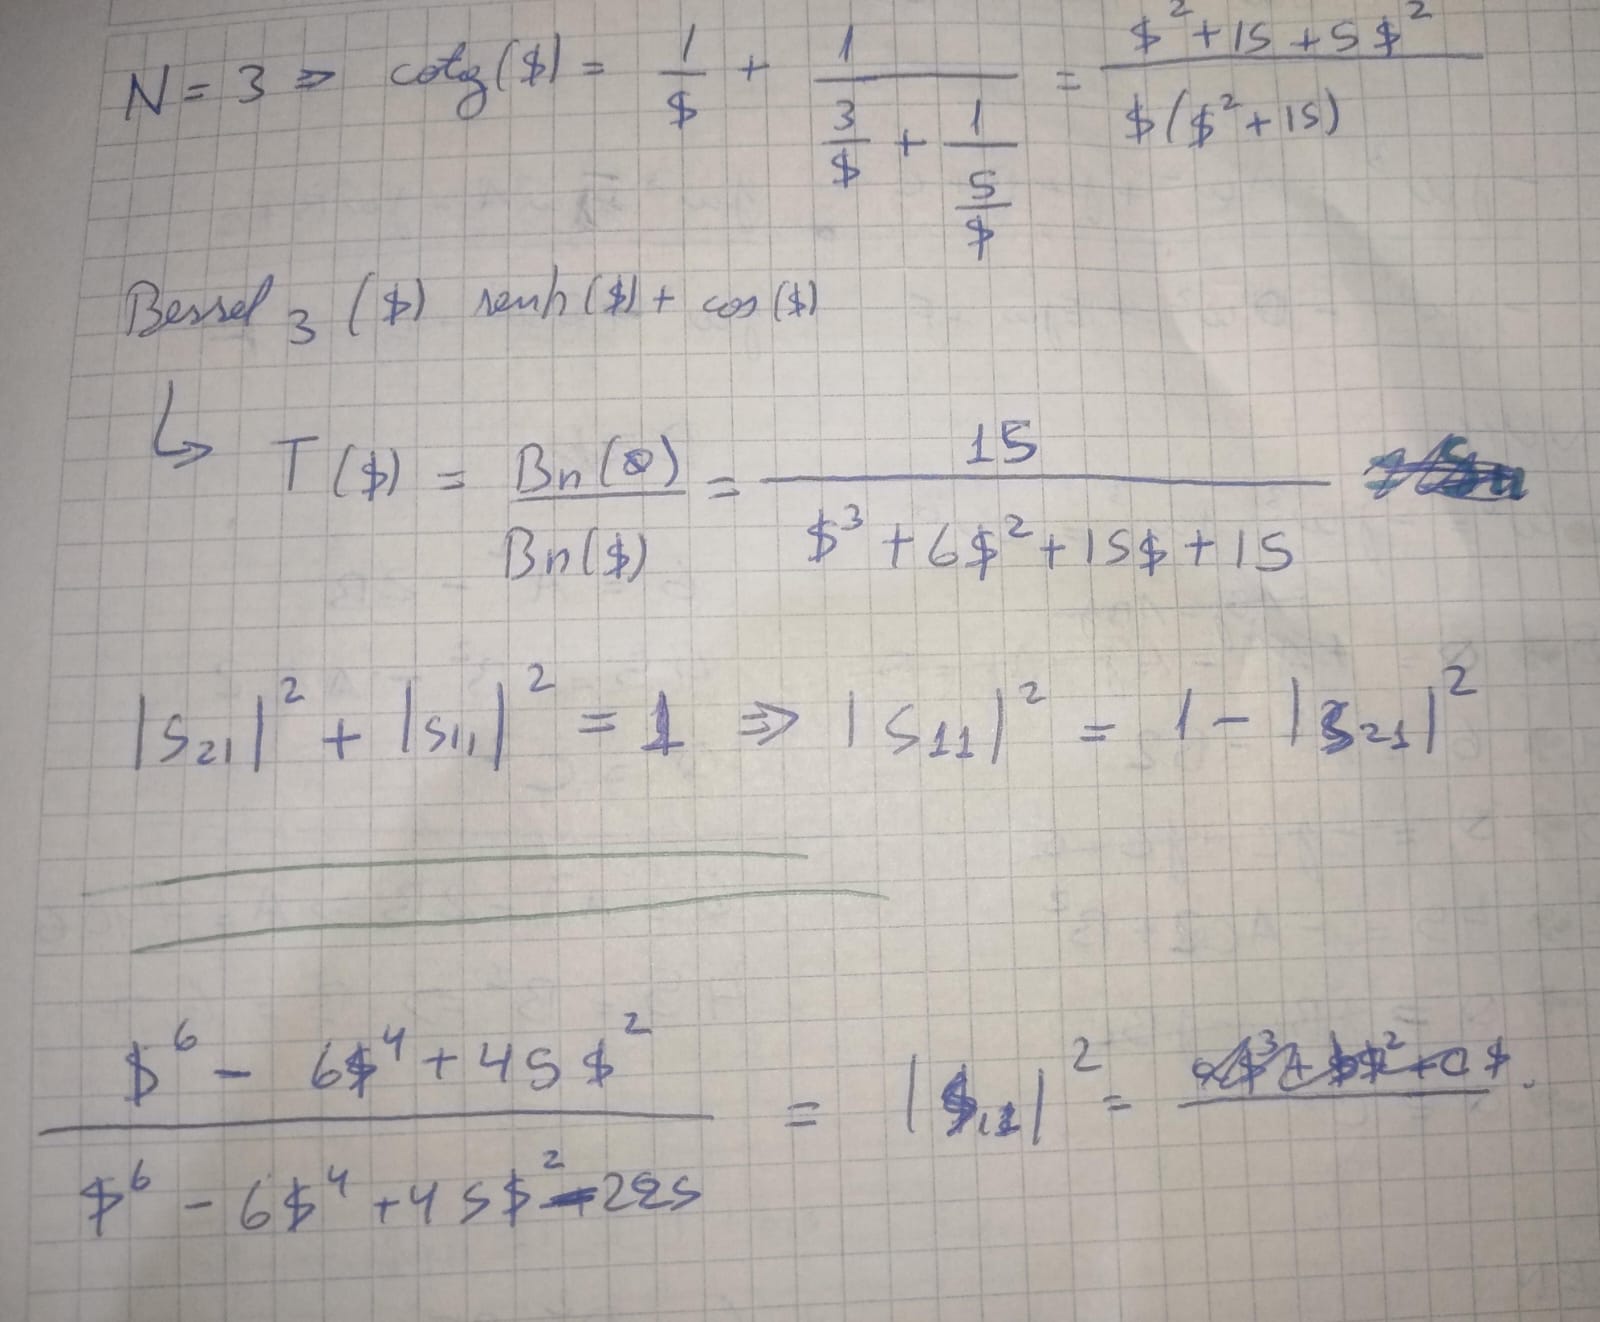 N = 3 ⇒ cotg($) = 1/$ + 1/(3/$ + 1/(5/$)) = ($² + 15 + 5$²)/($($² + 15))
Bessel 3 ($) senh($) + cos($)
↳ T($) = Bn(0)/Bn($) = 15/($³ + 6$² + 15$ + 15)
|S21|² + |S11|² = 1 ⇒ |S11|² = 1 - |S21|²
($⁶ - 6$⁴ + 45$²)/($⁶ - 6$⁴ + 45$² - 225) = |S11|² =